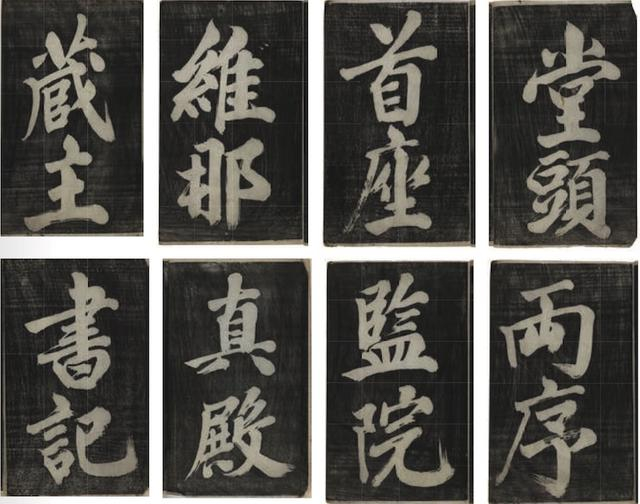 堂頭
首座
維那
蔵主
両序
監院
真殿
書記